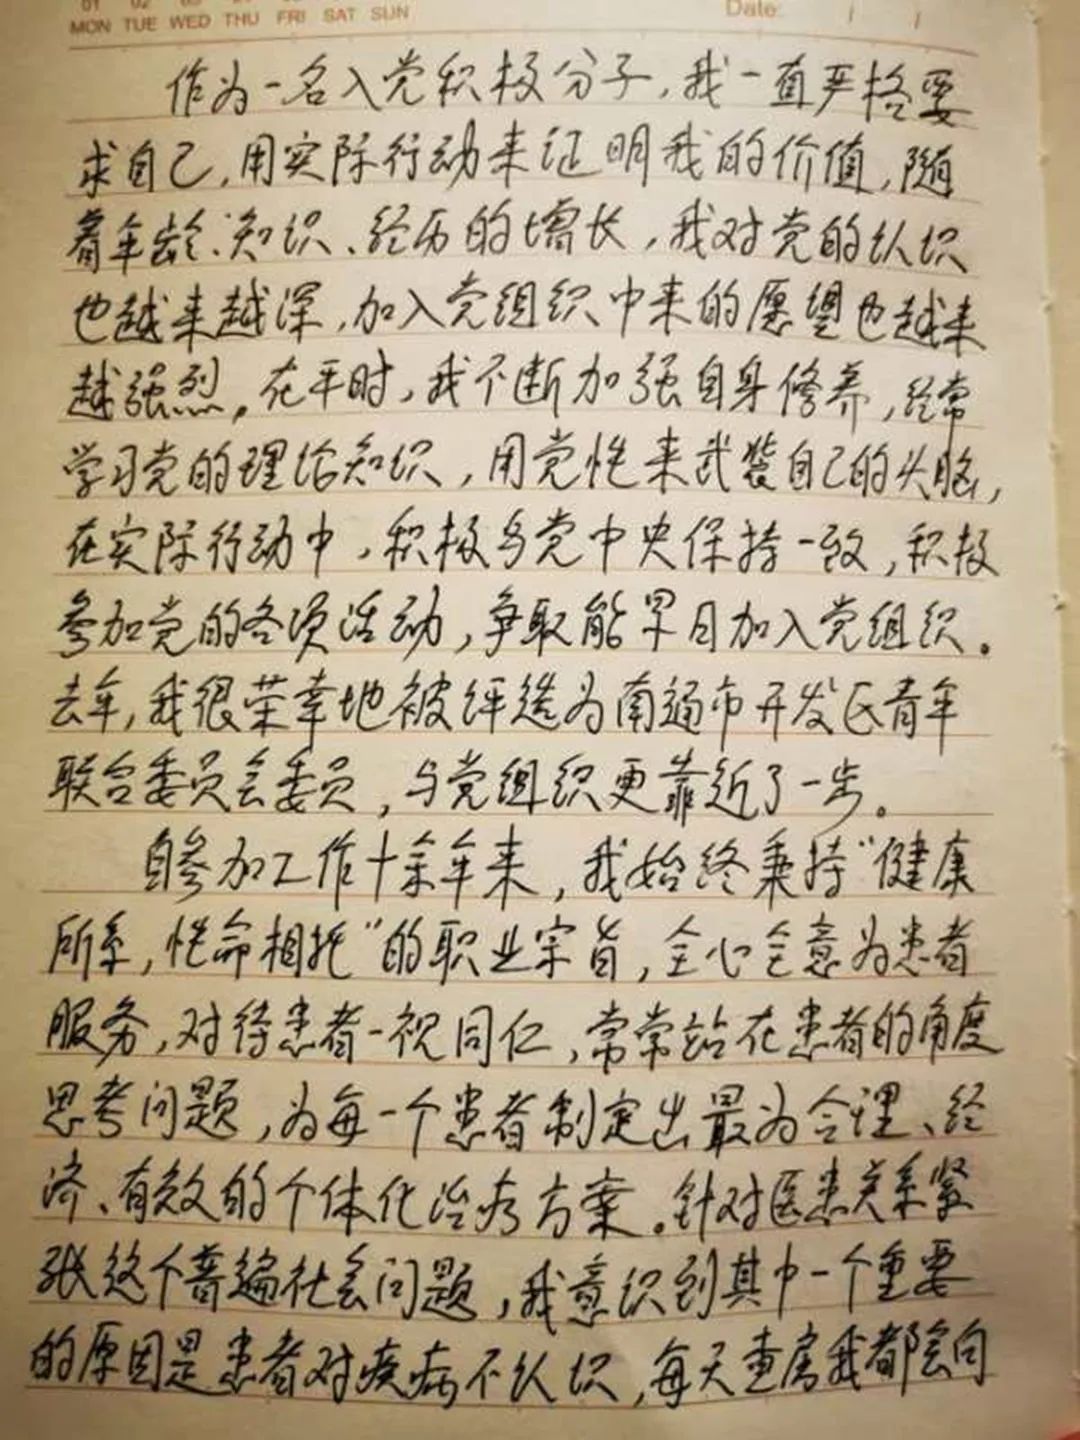 MON TUE WED THU FRI SAT SUN
Date:
作为一名入党积极分子,我一直严格要
求自己,用实际行动来证明我的价值,随
着年龄、知识、经历的增长,我对党的认识
也越来越深,加入党组织中来的愿望也越来
越强烈。在平时,我不断加强自身修养,经常
学习党的理论知识,用党性来武装自己的头脑,
在实际行动中,积极与党中央保持一致,积极
参加党的各项活动,争取能早日加入党组织。
去年,我很荣幸地被评选为南通市开发区青年
联合委员会委员,与党组织更靠近了一步。
自参加工作十余年来,我始终秉持“健康
所系,性命相托”的职业宗旨,全心全意为患者
服务,对待患者一视同仁,常常站在患者的角度
思考问题,为每一个患者制定出最为合理、经
济、有效的个体化治疗方案。针对医患关系紧
张这个普遍社会问题,我意识到其中一个重要
的原因是患者对疾病不认识,每天查房我都会向